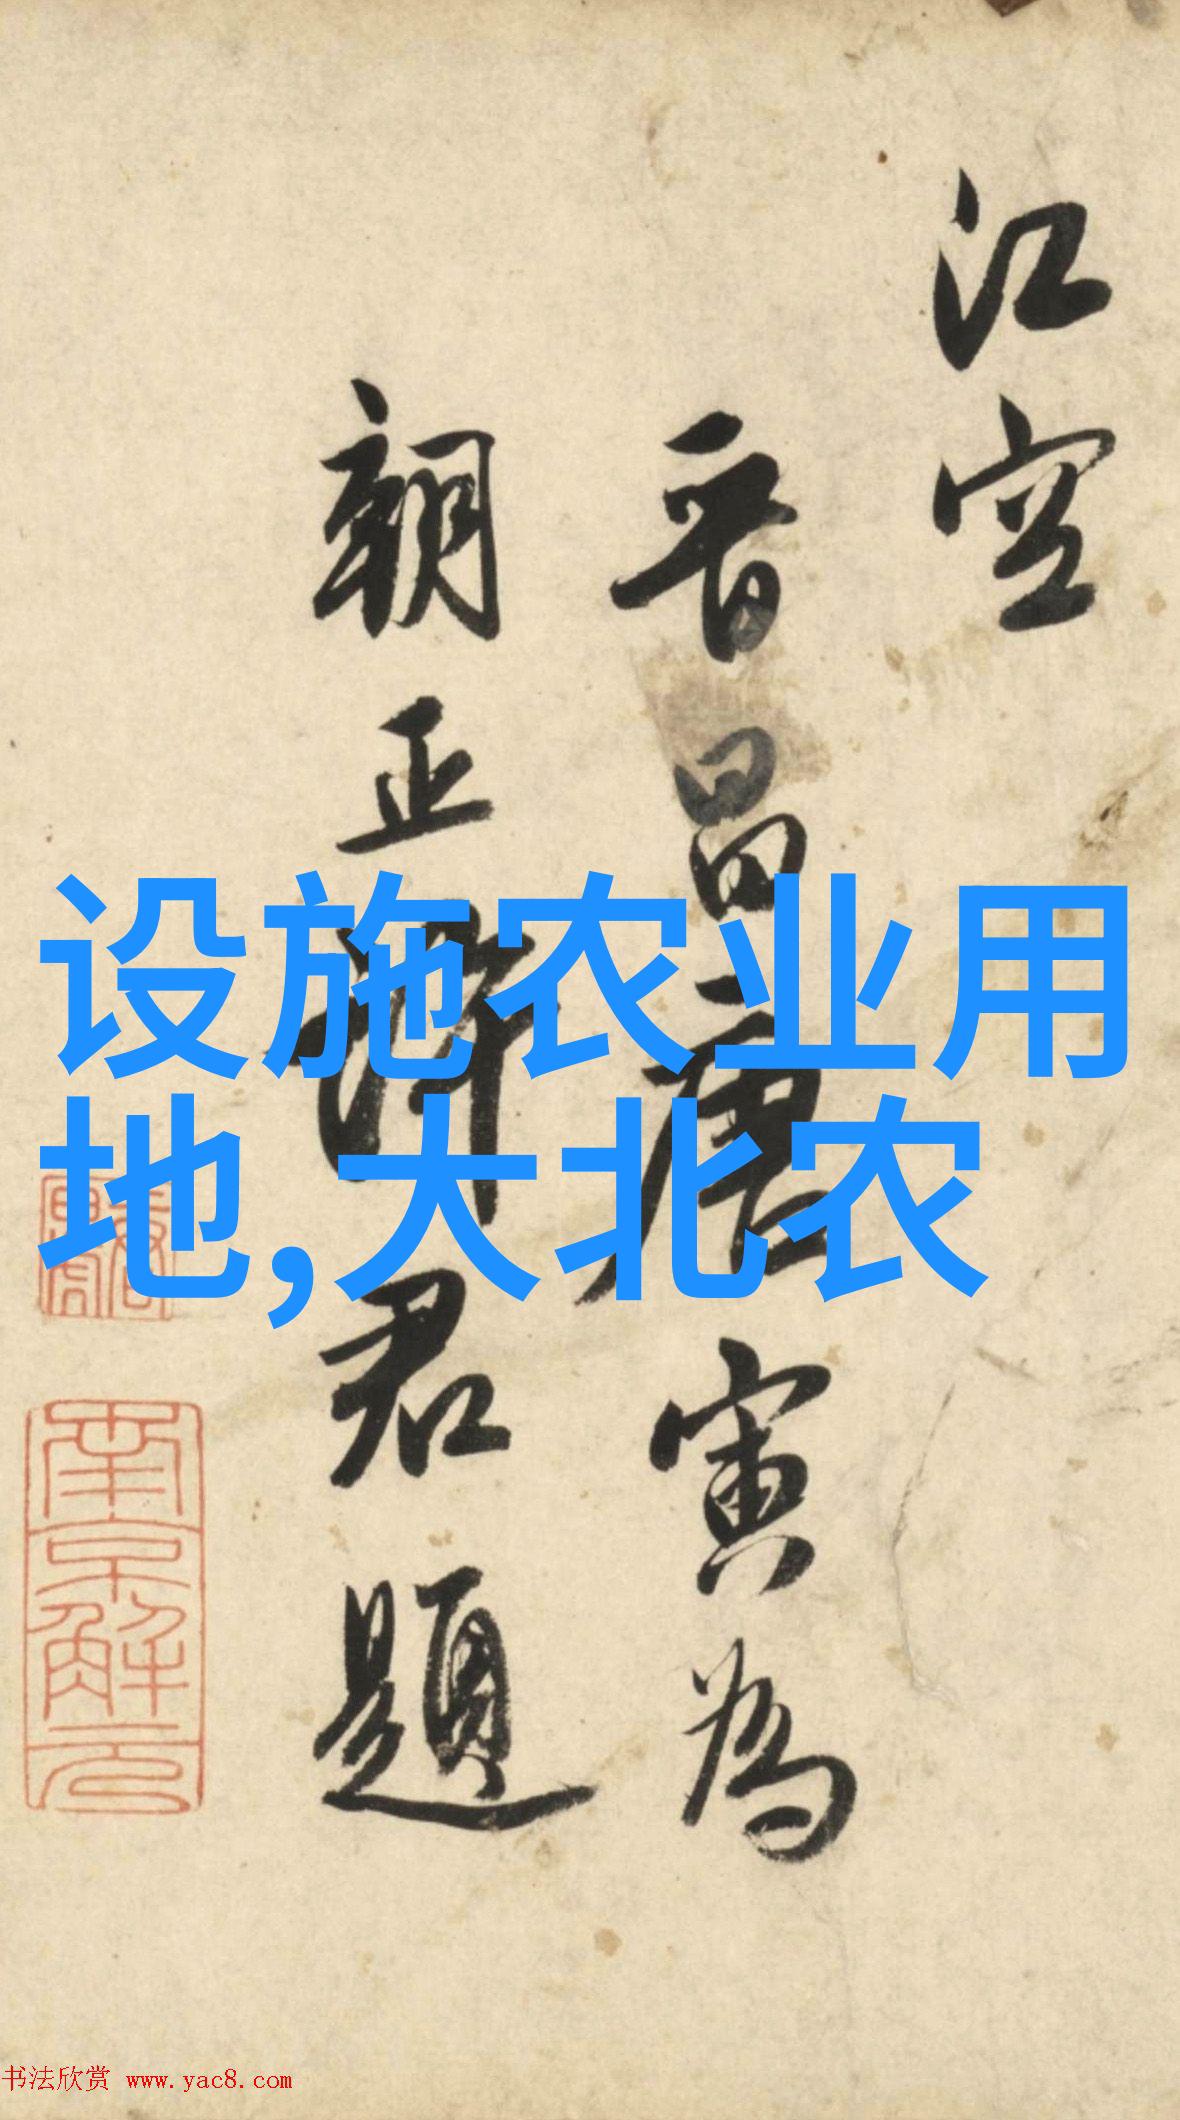 江空
晋昌唐寅為
朝正許君題
设施农业用
地,大北农
南京解元
书法欣赏 www.yac8.com